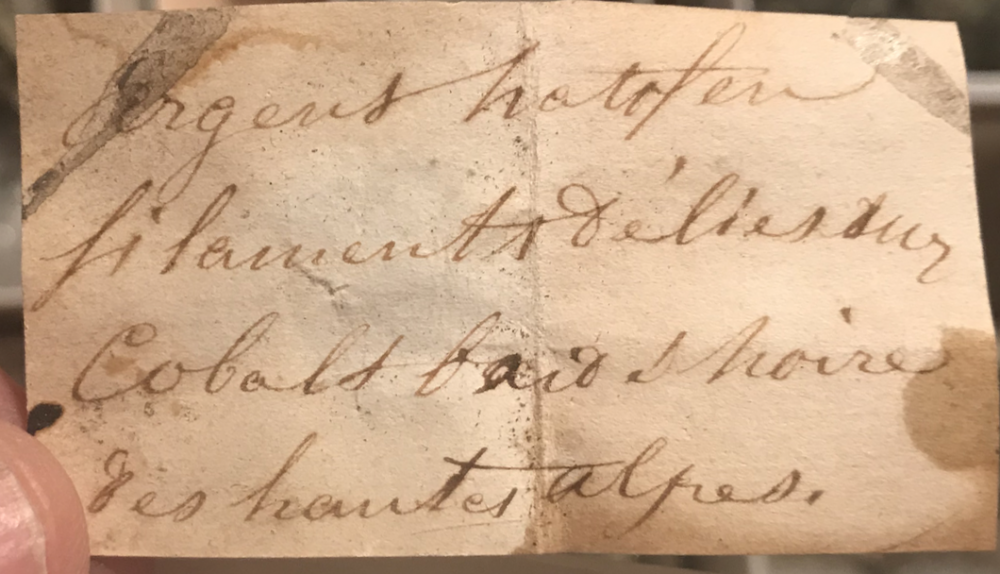 Argent natif en
filaments déliés sur
Cobalt
des hautes alpes.